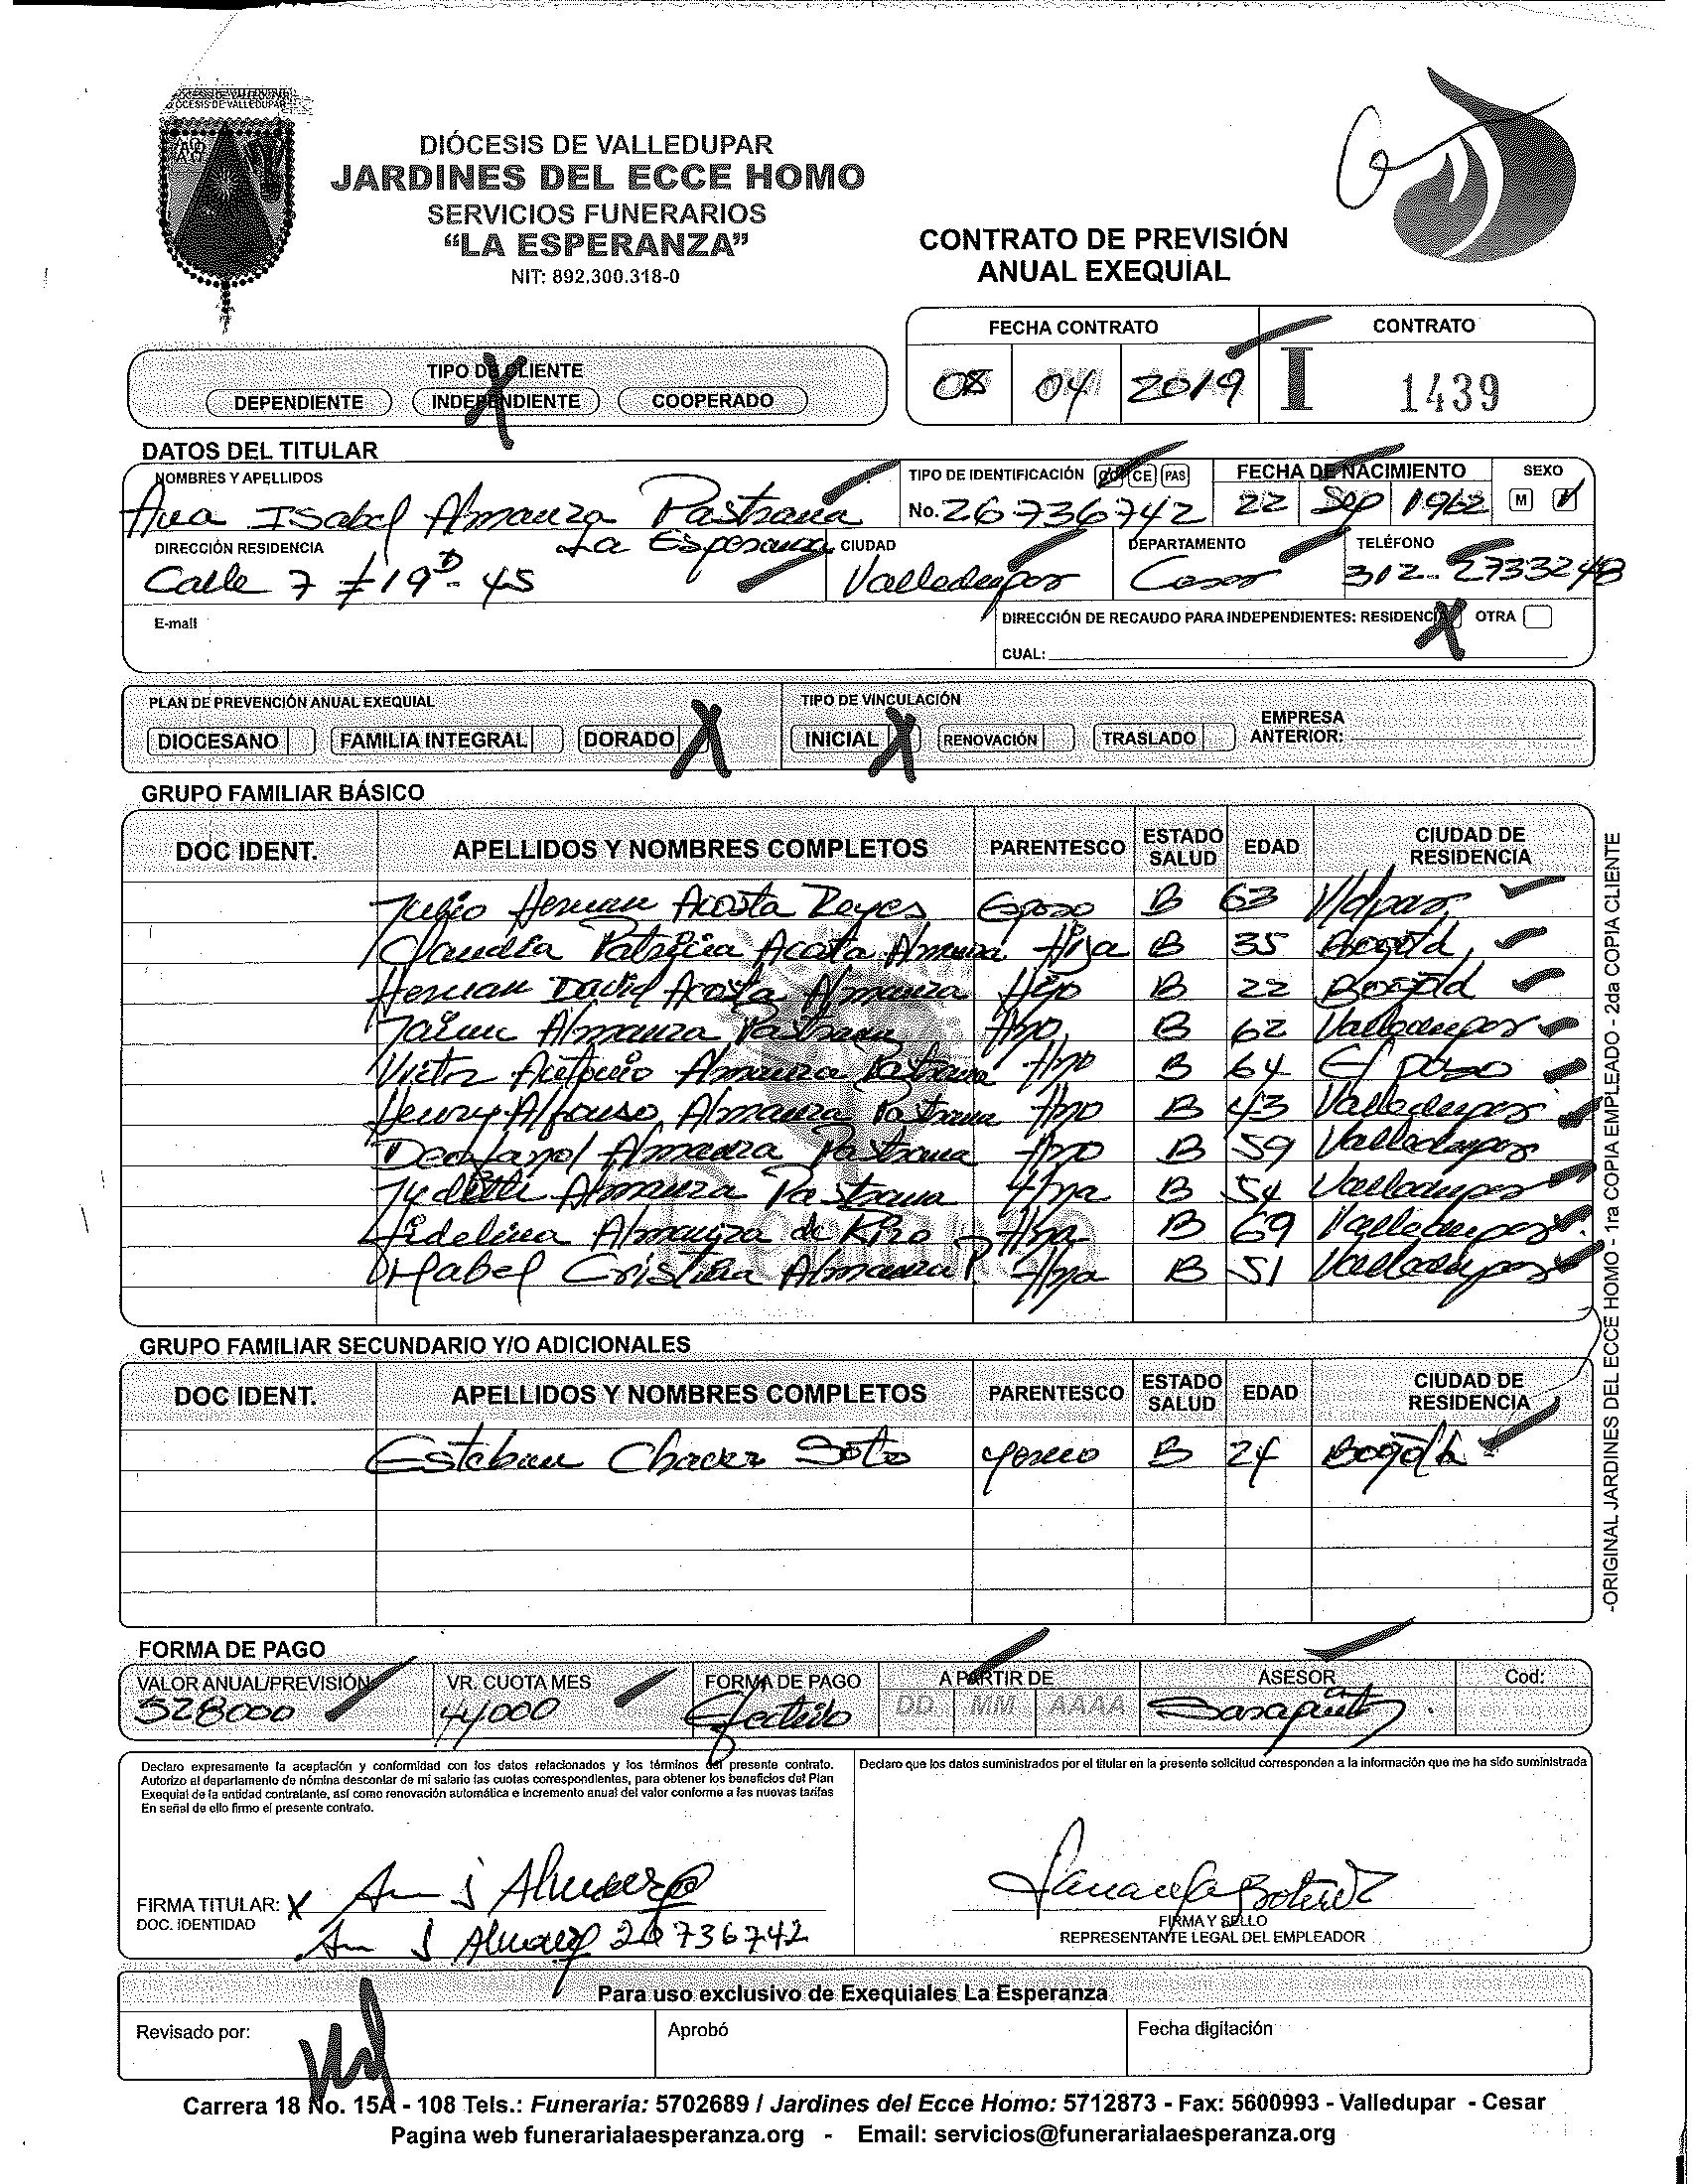 DIÓCESIS DE VALLEDUPAR
DIÓCESIS DE VALLEDUPAR
JARDINES DEL ECCE HOMO
SERVICIOS FUNERARIOS
“LA ESPERANZA”
NIT: 892.300.318-0
CONTRATO DE PREVISIÓN
ANUAL EXEQUIAL
FECHA CONTRATO CONTRATO
08 04 2019 I 1439
TIPO DE CLIENTE
DEPENDIENTE INDEPENDIENTE X COOPERADO
DATOS DEL TITULAR
NOMBRES Y APELLIDOS TIPO DE IDENTIFICACIÓN CE PAS FECHA DE NACIMIENTO SEXO
Ana Isabel Almanza Pastrana No. 26736742 22 Sep 1962 M F
DIRECCIÓN RESIDENCIA La Esperanza CIUDAD DEPARTAMENTO TELÉFONO
Calle 7 # 19D - 45 Valledupar Cesar 302-2733248
E-mail DIRECCIÓN DE RECAUDO PARA INDEPENDIENTES: RESIDENCIA X OTRA
CUAL:
PLAN DE PREVENCIÓN ANUAL EXEQUIAL TIPO DE VINCULACIÓN
DIOCESANO FAMILIA INTEGRAL DORADO X INICIAL X RENOVACIÓN TRASLADO EMPRESA ANTERIOR:
GRUPO FAMILIAR BÁSICO
DOC IDENT. APELLIDOS Y NOMBRES COMPLETOS PARENTESCO ESTADO SALUD EDAD CIUDAD DE RESIDENCIA
Julio Hernan Acosta Reyes Esposo B 63 V/dpar
Claudia Patricia Acosta Almanza Hija B 35 Bogotá
Hernan David Acosta Almanza Hijo B 22 Bogotá
Jaime Almanza Pastrana Hno B 62 Valledupar
Victor Antonio Almanza Pastrana Hno B 64 El paso
Henry Alfonso Almanza Pastrana Hno B 43 Valledupar
Almanza Pastrana Hno B 59 Valledupar
Almanza Pastrana Hna B 54 Valledupar
Fidelina Almanza de Hna B 69 Valledupar
Mabel Cristina Almanza P. Hna B 51 Valledupar
GRUPO FAMILIAR SECUNDARIO Y/O ADICIONALES
DOC IDENT. APELLIDOS Y NOMBRES COMPLETOS PARENTESCO ESTADO SALUD EDAD CIUDAD DE RESIDENCIA
Esteban Chavez Soto yerno B 24 Bogotá
-ORIGINAL JARDINES DEL ECCE HOMO - 1ra COPIA EMPLEADO - 2da COPIA CLIENTE
FORMA DE PAGO
VALOR ANUAL/PREVISIÓN VR. CUOTA MES FORMA DE PAGO A PARTIR DE ASESOR Cod:
528000 44000 Efectivo DD MM AAAA
Declaro expresamente la aceptación y conformidad con los datos relacionados y los términos del presente contrato.
Autorizo al departamento de nómina descontar de mi salario las cuotas correspondientes, para obtener los beneficios del Plan
Exequial de la entidad contratante, así como renovación automática e incremento anual del valor conforme a las nuevas tarifas
En señal de ello firmo el presente contrato.
Declaro que los datos suministrados por el titular en la presente solicitud corresponden a la información que me ha sido suministrada
FIRMA TITULAR: X
DOC. IDENTIDAD 26736742
FIRMA Y SELLO
REPRESENTANTE LEGAL DEL EMPLEADOR
Para uso exclusivo de Exequiales La Esperanza
Revisado por: Aprobó Fecha digitación
Carrera 18 No. 15A - 108 Tels.: Funeraria: 5702689 / Jardines del Ecce Homo: 5712873 - Fax: 5600993 - Valledupar - Cesar
Pagina web funerarialaesperanza.org - Email: servicios@funerarialaesperanza.org